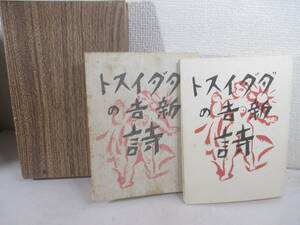 ダダイスト
新吉の
詩
ダダイスト
新吉の
詩